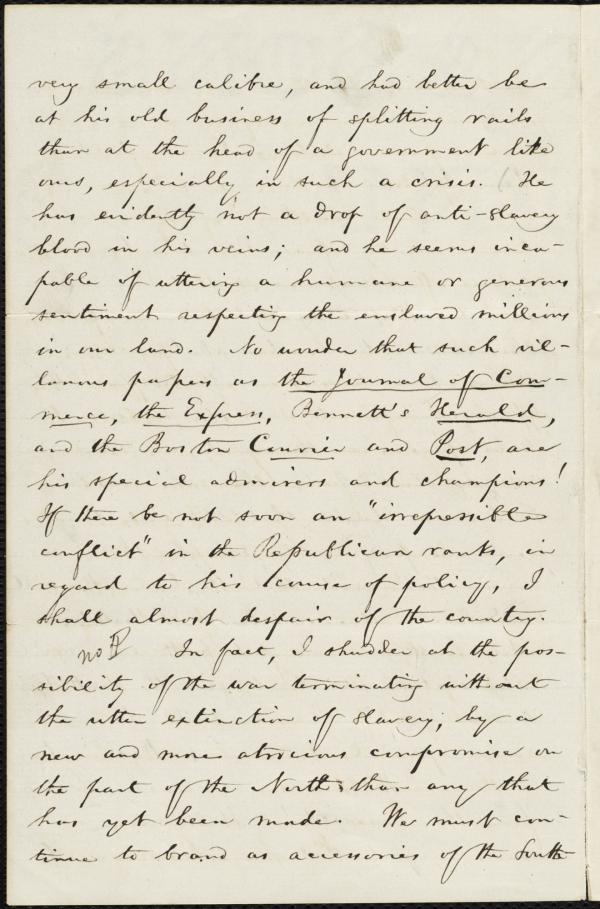 very small calibre, and had better be
at his old business of splitting rails
than at the head of a government like
ours, especially in such a crisis. (He
has evidently not a drop of anti-slavery
blood in his veins; and he seems inca-
pable of uttering a humane or generous
sentiment respecting the enslaved millions
in our land. No wonder that such vil-
lanous papers as the Journal of Com-
merce, the Express, Bennett's Herald,
and the Boston Courier and Post, are
his special admirers and champions!
If there be not soon an "irrepressible
conflict" in the Republican ranks, in
regard to his course of policy, I
shall almost despair of the country.
no ¶ In fact, I shudder at the pos-
sibility of the war terminating without
the utter extinction of slavery, by a
new and more atrocious compromise on
the part of the North than any that
has yet been made. We must con-
tinue to brand as accessories of the South